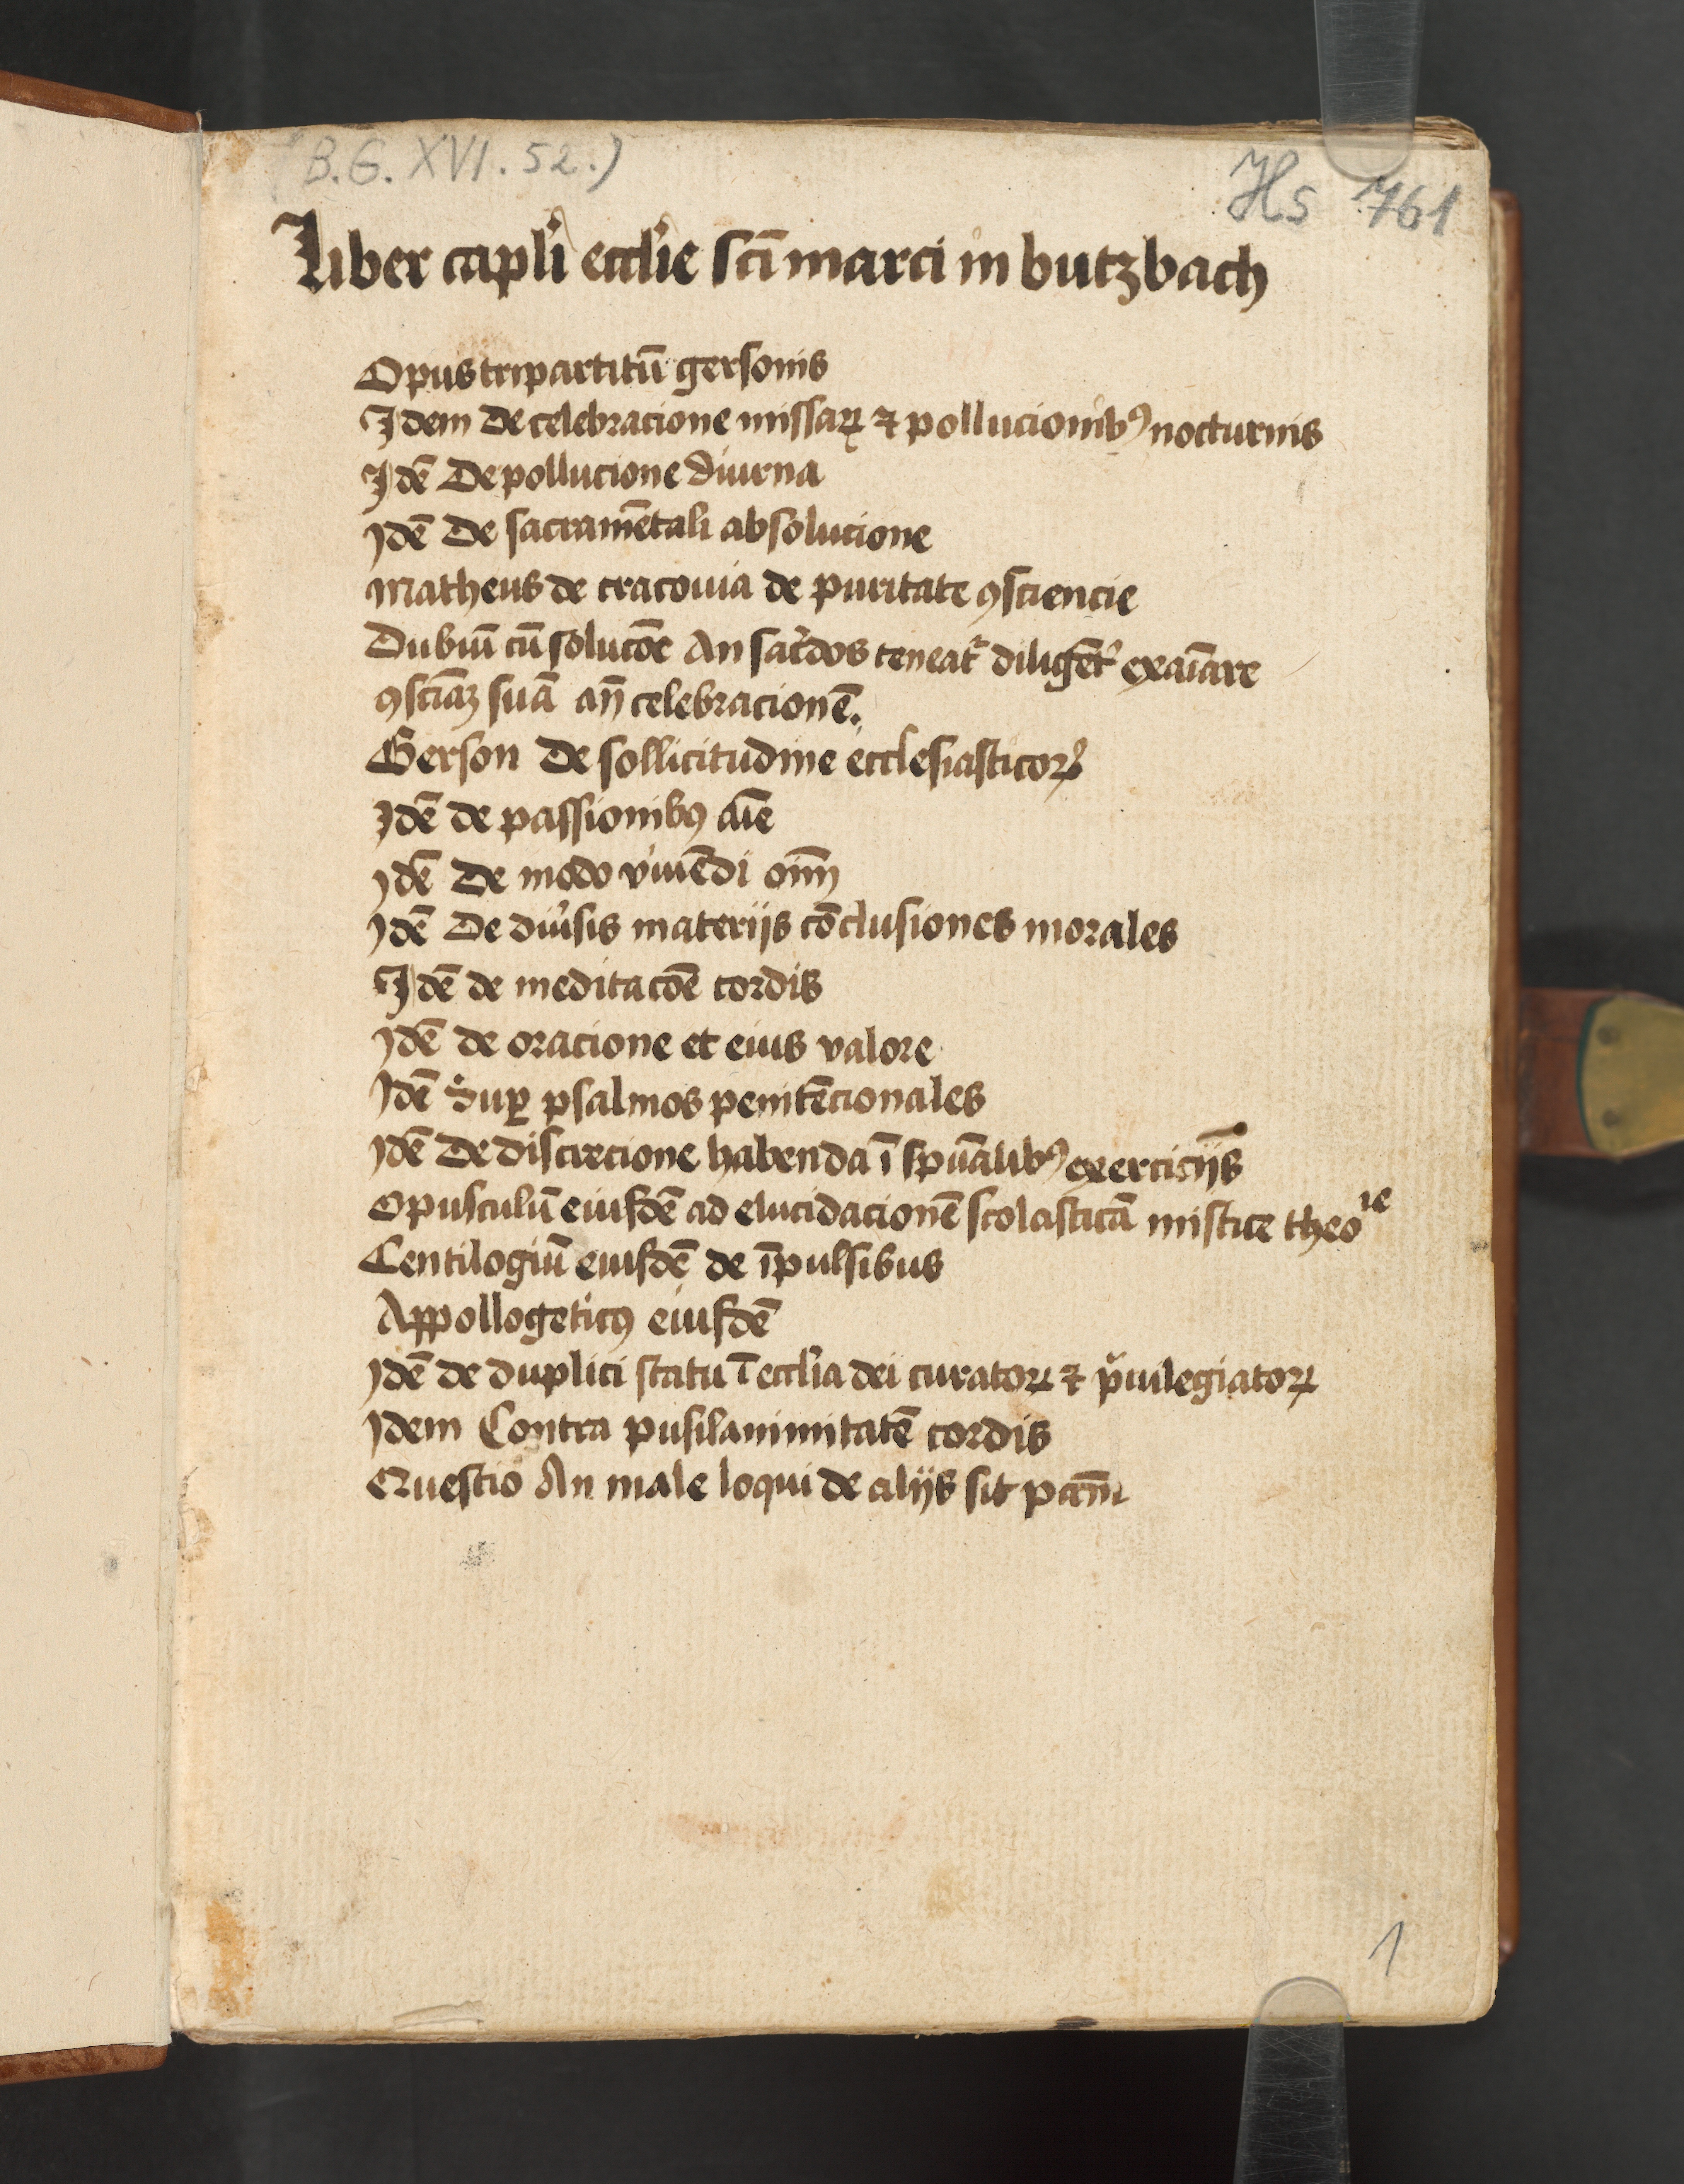 (B.G. XVI. 52.)
Hs 761
Liber capl'i eccl'ie scī marci in butzbach
Opus tripartitū gersonis
Idem De celebracione missaꝝ ⁊ pollucionibꝫ nocturnis
Idē De pollucione diurna
Idē De sacramētali absolucione
Matheus de cracouia de puritate ꝯsciencie
Dubiū cū solucōe An sac'dos teneat' diligēt' exaīare
ꝯsciāꝫ suā an̄ celebracionē.
Gerson De sollicitudine ecclesiasticoꝝ
Idē de passionibꝰ aīe
Idē De modo viuēdi oīm
Idē De diu'sis materijs cōclusiones morales
Idē de meditacōe cordis
Idē de oracione et eius valore
Idē Suꝑ psalmos penitēcionales
Idē De discrecione habenda ī spūalibꝰ exercicijs
Opusculū eiusdē ad elucidacionē scolasticā mistice theo^ie
Centilogiū eiusdē de īpulsibus
Appollogeticꝰ eiusdē
Idē de duplici statu ī eccl'ia dei curatoꝝ ⁊ p'uilegiatoꝝ
Idem Contra pusilanimitatē cordis
Questio An male loqui de alijs sit pctm̄
1